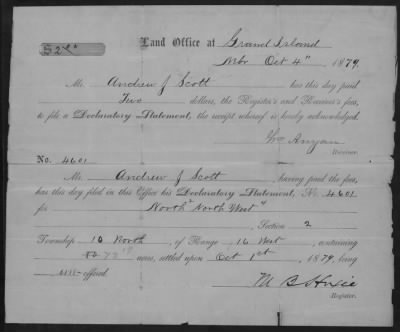 $2
Land Office at Grand Island
Nbr Oct 4" 1879.
Mr. Andrew J Scott has this day paid
Two dollars, the Register's and Receiver's fees,
to file a Declaratory Statement, the receipt whereof is hereby acknowledged.
Wm Anyan
Receiver.
No. 4601
Mr. Andrew J Scott, having paid the fees,
has this day filed in this Office his Declaratory Statement, No. 4601
for North ½ North West ¼
, Section 2
Township 16 North, of Range 16 West, containing
acres, settled upon Oct 1st, 1879, being
offered.
M B Hoxie
Register.